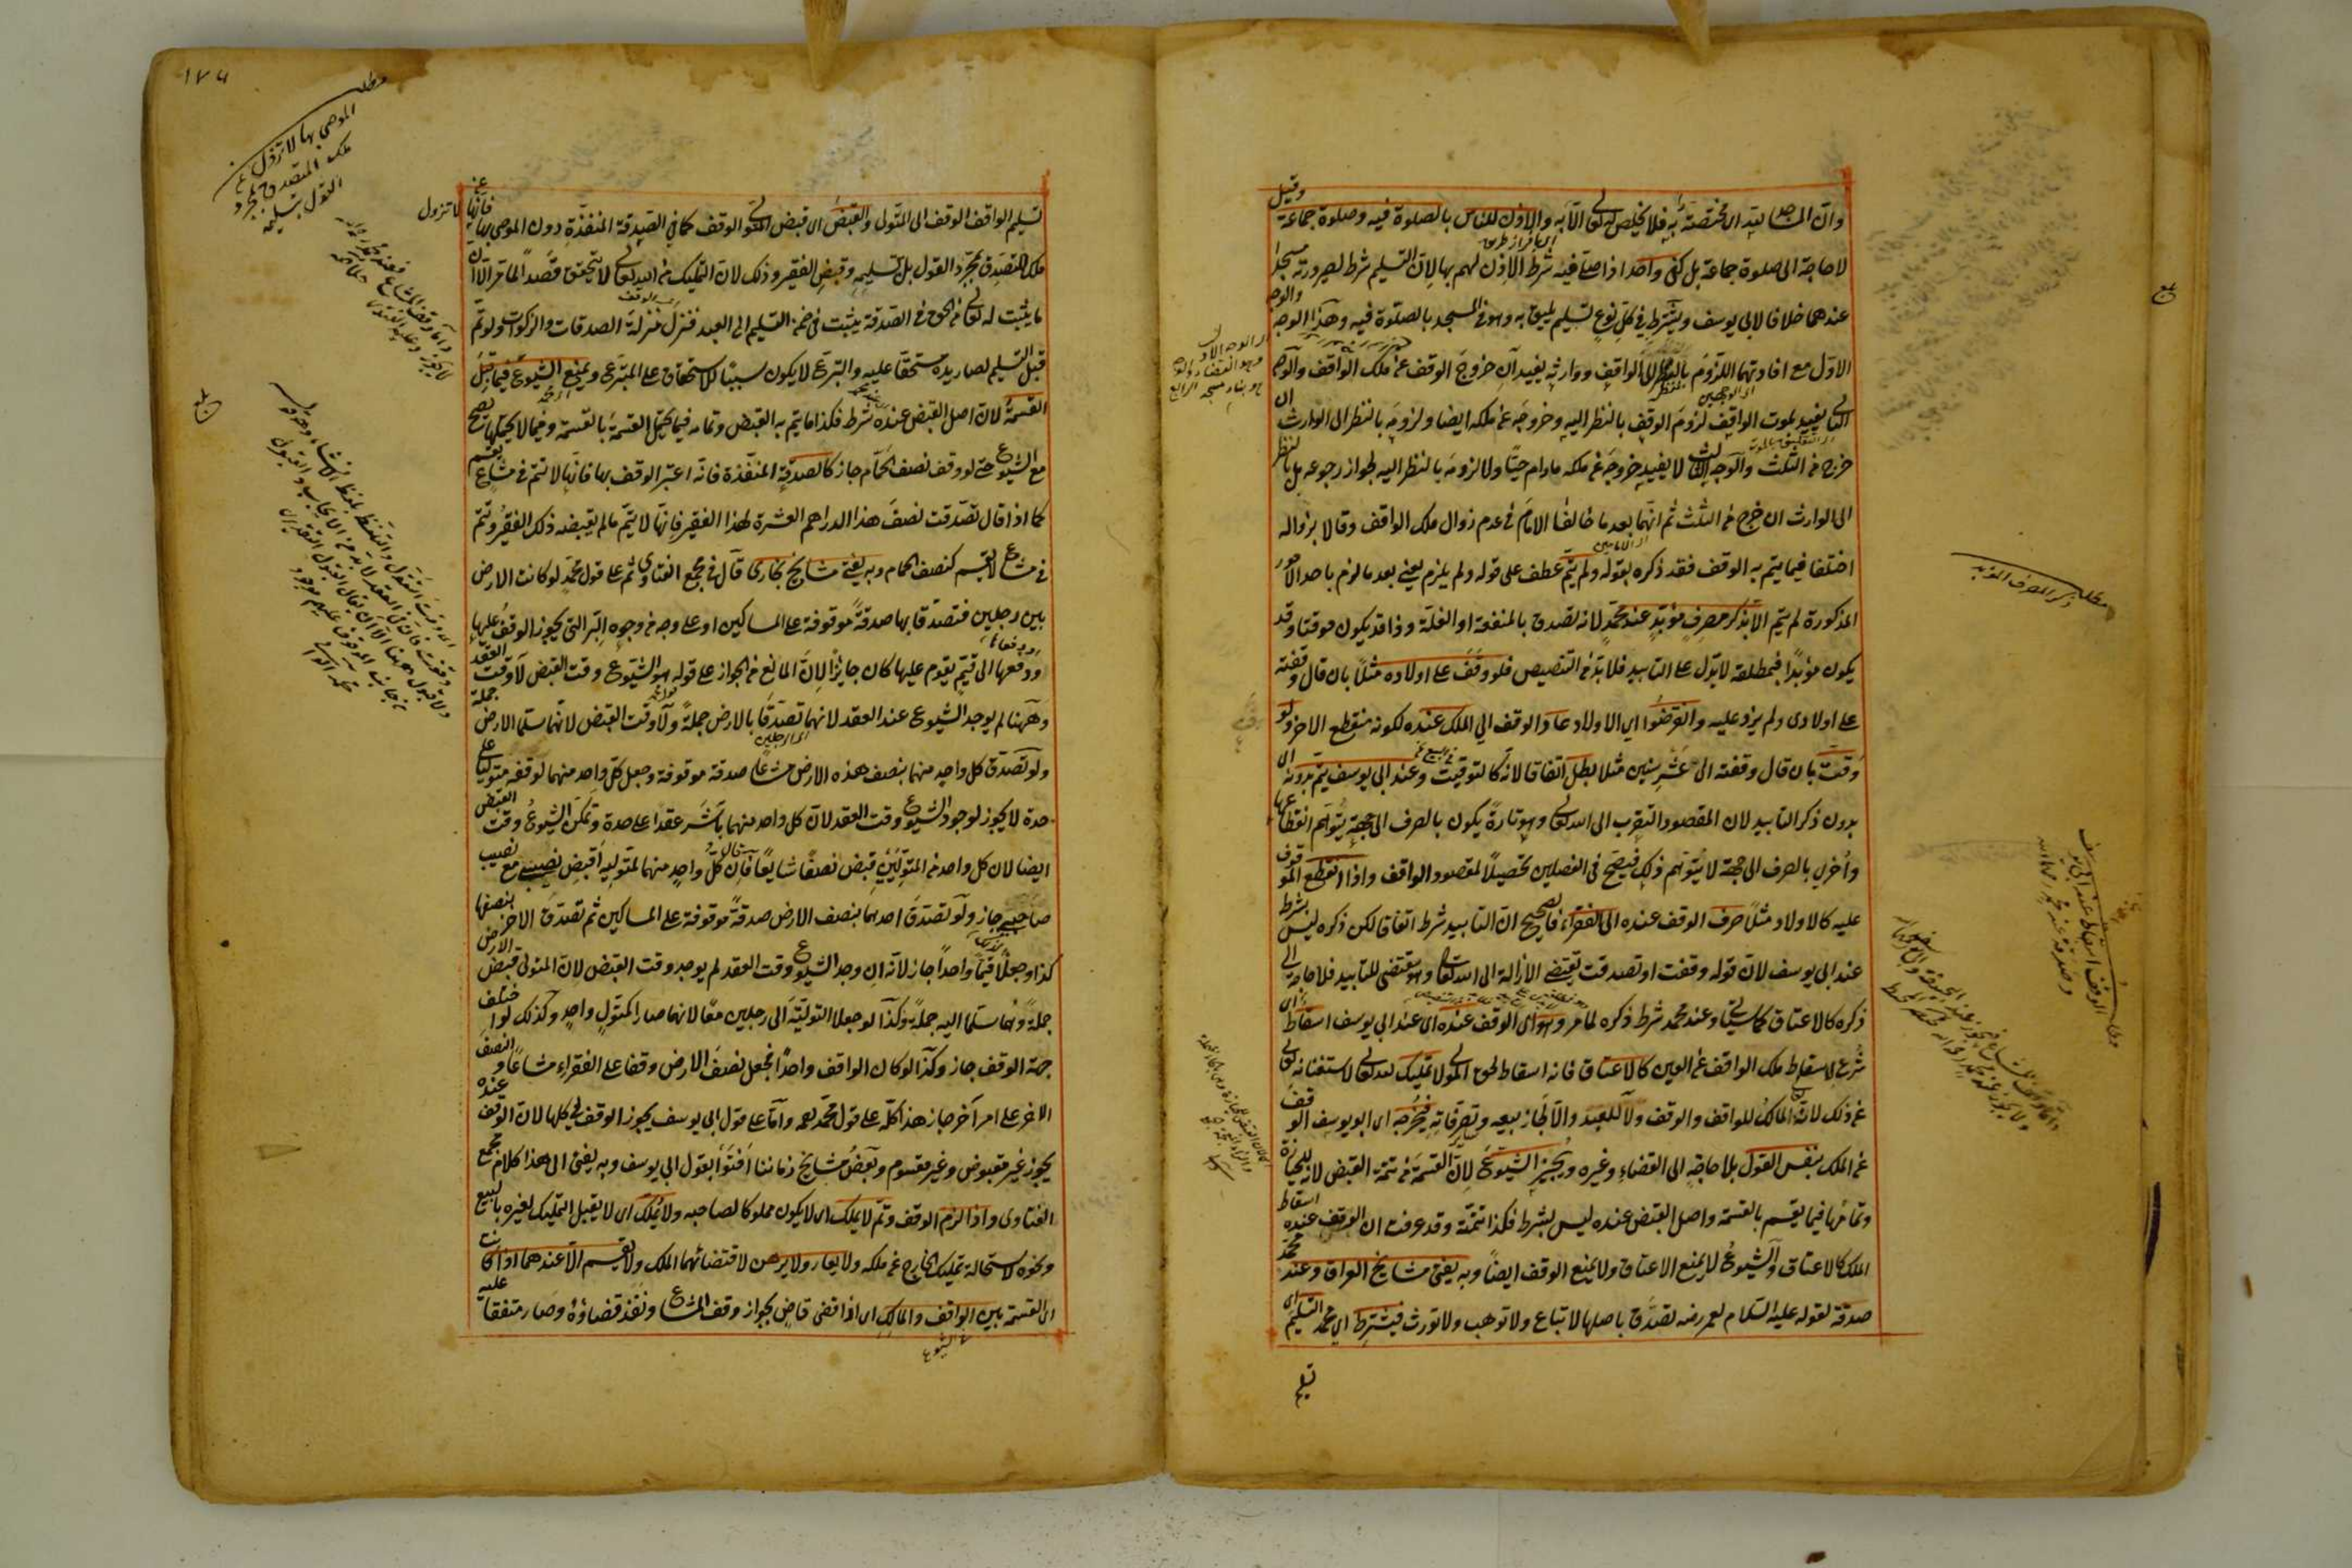 وان المساجد لله اى مختصة به فلا يخلص لله تعالى الا به والاذن للناس بالصلوة فيه وصلوة جماعة وقيل
لا حاجة الى صلوة جماعة بل كفى واحد اذا صلى فيه شرط الاذن لهم بها لان التسليم شرط لصيرورته مسجدا
عندهما خلافا لابى يوسف ويشترط فى كل نوع تسليم يليق به وهو فى المسجد بالصلوة فيه وهذا الوجه
الاول مع افادتهما اللزوم بالنظر الى الواقف ووارثه يفيد ان خروج الوقف عن ملك الواقف والوجه
الثانى يفيد بموت الواقف لزوم الوقف بالنظر اليه وخروجه عن ملكه ايضا ولزومه بالنظر الى الوارث ان
خرج من الثلث والوجه الثالث لا يفيد خروجه عن ملكه مادام حيا ولا لزومه بالنظر اليه لجواز رجوعه بل بالنظر
الى الوارث ان خرج من الثلث ثم انهما بعد ما خالفا الامام فى عدم زوال ملك الواقف وقالا بزواله
اختلفا فيما يتم به الوقف فقد ذكره بقوله ولم يتم عطف على قوله ولم يلزم يعنى بعد ما لزم باحد الامور
المذكورة لم يتم الا بذكر مصرف مؤبد عند محمد لانه تصدق بالمنفعة او الغلة وذا قد يكون موقتا وقد
يكون مؤبدا فبمطلقه لا يدل على التابيد فلا بد من التنصيص فلو وقف على اولاده مثلا بان قال وقفته
على اولادى ولم يزد عليه وانقرضوا اى الاولاد عاد الوقف الى الملك عنده لكونه منقطع الاخر ولو
وقت بان قال وقفته الى عشر سنين مثلا بطل اتفاقا لانه كالتوقيت فى البيع وعند ابى يوسف يتم بدونه اى
بدون ذكر التابيد لان المقصود التقرب الى الله تعالى وهو تارة يكون بالصرف الى جهة يتوهم انقطاعها
واخرى بالصرف الى جهة لا يتوهم ذلك فيصح فى الفصلين تحصيلا لمقصود الواقف واذا انقطع الموقوف
عليه كالاولاد مثلا صرف الوقف عنده الى الفقراء فالصحيح ان التابيد شرط اتفاقا لكن ذكره ليس بشرط
عند ابى يوسف لان قوله وقفت او تصدقت يقتضى الازالة الى الله تعالى وهو مقتضى للتابيد فلا حاجة الى
ذكره كالاعتاق كما سياتى وعند محمد شرط ذكره لما مر وهو اى الوقف عنده اى عند ابى يوسف اسقاط اى
شرع لاسقاط ملك الواقف عن العين كالاعتاق فانه اسقاط لحق المولى لا تمليك لله تعالى لاستغنائه تعالى
عن ذلك لانه المالك للواقف والوقف ولا للعبد والا لجاز بيعه وتصرفاته فيخرجه اى ابو يوسف الوقف
عن الملك بنفس القول بلا حاجة الى القضاء وغيره ويجيز الشيوع لان القسمة من تتمة القبض لانه للحيازة
وتمامها فيما يقسم بالقسمة واصل القبض عنده ليس بشرط فكذا تتمته وقد عرفت ان الوقف عنده اسقاط
الملك كالاعتاق والشيوع لا يمنع الاعتاق ولا يمنع الوقف ايضا وبه يفتى مشايخ العراق وعند محمد
صدقة لقوله عليه السلام لعمر رضه تصدق باصلها لا تباع ولا توهب ولا تورث فيشترط اى محمد التسليم اى
تسليم
مطلب ذكر المصرف المؤبد
١٧٤
تسليم الواقف الوقف الى المتولى والقبض اى قبض المتولى الوقف كما فى الصدقة المنفذة دون الموصى بها فانها لا تزول عن
ملك المتصدق بمجرد القول بل بتسليمه وقبض الفقير وذلك لان التمليك من الله تعالى لا يتحقق قصدا لما مر الا ان
ما يثبت له تعالى من الحق فى الصدقة يثبت فى ضمن التسليم الى العبد فنزل منزلة الصدقات والزكوات ولو تم
قبل التسليم لصار يده مستحقا عليه والتبرع لا يكون سببا للاستحقاق على المتبرع ويمنع الشيوع فيما قبل
القسمة لان اصل القبض عنده شرط فكذا ما يتم به القبض وتمامه فيما يحتمل القسمة بالقسمة وفيما لا يحتملها يصح
مع الشيوع حتى لو وقف نصف الحمام جاز كالصدقة المنفذة فانه اعتبر الوقف بها فانها لا تتم فى مشاع يقسم
كما اذا قال تصدقت نصف هذا الدراهم العشرة لهذا الفقير فانها لا يتم مالم يقبضه ذلك الفقير وتتم
فى مشاع لا يقسم كنصف الحمام وبه يفتى مشايخ بخارى قال فى مجمع الفتاوى ثم على قول محمد لو كانت الارض
بين رجلين فتصدقا بها صدقة موقوفة على المساكين او على وجه من وجوه البر التى يجوز الوقف عليها
ودفعها الى قيم يقوم عليها كان جائزا لان المانع من الجواز على قوله هو الشيوع وقت القبض لا وقت العقد
وههنا لم يوجد الشيوع عند العقد لانهما تصدقا بالارض جملة ولا وقت القبض لانهما سلما الارض جملة
ولو تصدق كل واحد منهما بنصف هذه الارض مشاعا صدقة موقوفة وجعل كل واحد منهما لوقفه متوليا على
حدة لا يجوز لوجود الشيوع وقت العقد لان كل واحد منهما باشر عقدا على حدة وتمكن الشيوع وقت القبض
ايضا لان كل واحد من المتوليين قبض نصفا شايعا فان قال كل واحد منهما لمتوليه اقبض نصيبى مع نصيب
صاحبى جاز ولو تصدق احدهما بنصف الارض صدقة موقوفة على المساكين ثم تصدق الاخر بنصفها
كذا وجعلا قيما واحدا جاز لانه ان وجد الشيوع وقت العقد لم يوجد وقت القبض لان المتولى قبض الارض
جملة وهما سلما اليه جملة وكذا لو جعلا التولية الى رجلين معا لانهما صارا كمتول واحد وكذلك لو اختلف
جهة الوقف جاز وكذا لو كان الواقف واحدا فجعل نصف الارض وقفا على الفقراء مشاعا والنصف
الاخر على امر آخر جاز هذا كله على قول محمد رحمه واما على قول ابى يوسف يجوز الوقف فى كلها لان الوقف عنده
يجوز غير مقبوض وغير مقسوم وبعض مشايخ زماننا افتوا بقول ابى يوسف وبه يفتى الى هذا كلام مجمع
الفتاوى واذا لزم الوقف وتم لا يملك اى لا يكون مملوكا لصاحبه ولا يملك اى لا يقبل التمليك لغيره بالبيع
ونحوه لاستحالة تمليك الخارج عن ملكه ولا يعار ولا يرهن لاقتضائهما الملك ولا يقسم الا عندهما اذا كانت
اى القسمة بين الواقف والمالك اى اذا قضى قاض بجواز وقف المشاع ونفذ قضاؤه وصار متفقا عليه
مطلب
الموصى بها لا تزول عن
ملك المتصدق بمجرد
القول بتسليمه